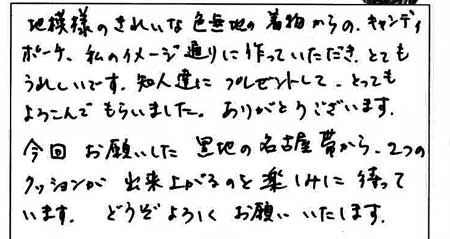 地模様のきれいな色無地の着物からの、キャンディ
ポーチ、私のイメージ通りに作っていただき、とても
うれしいです。知人達にプレゼントして、とっても
よろこんでもらいました。ありがとうございます。
今回お願いした黒地の名古屋帯から、2つの
クッションが出来上がるのを楽しみに待って
います。どうぞよろしくお願いいたします。